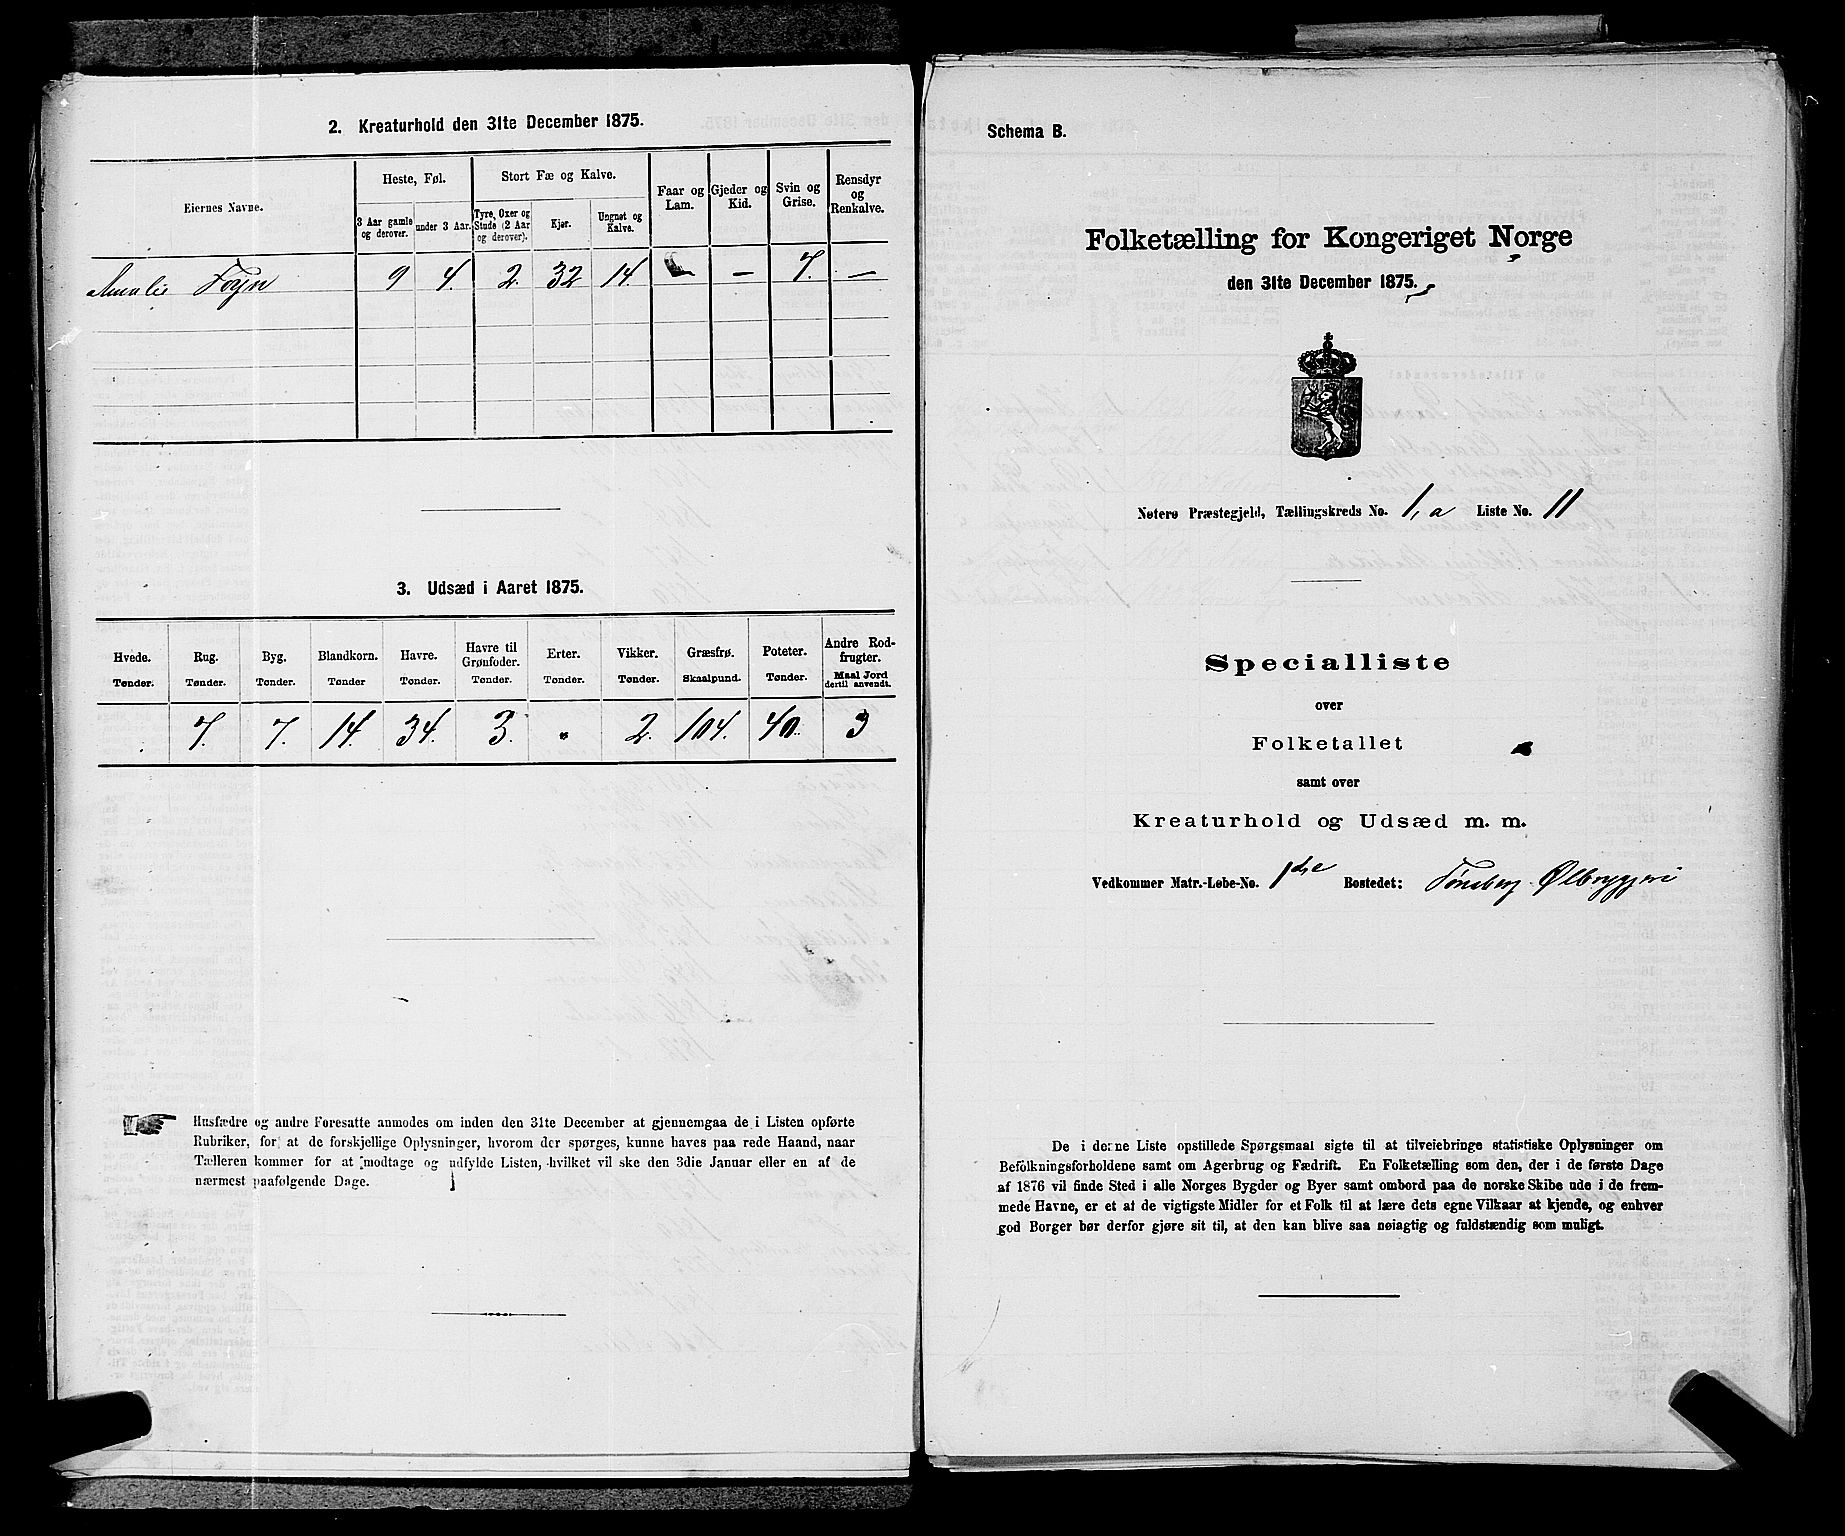 2. Kreaturhold den 31te December 1875.
Eiernes Navne.
Heste, Føl.
Stort Fæ og Kalve.
3 Aar gamle og derover.
under 3 Aar.
Tyre, Oxer og Stude (2 Aar og derover).
Kjør.
Ungnøt og Kalve.
Faar og Lam.
Gjeder og Kid.
Svin og Grise.
Rensdyr og Renkalve.
Amalie Foyn 9 4. 2. 32 14. — — 7. —
3. Udsæd i Aaret 1875.
Hvede. Tønder.
Rug. Tønder.
Byg. Tønder.
Blandkorn. Tønder
Havre. Tønder.
Havre til Grønfoder. Tønder.
Erter. Tønder.
Vikker. Tønder.
Græsfrø. Skaalpund.
Poteter. Tønder.
Andre Rodfrugter. Maal Jord dertil anvendt.
7. 7. 14. 34. 3. " 2. 104. 40. 3
Husfædre og andre Foresatte anmodes om inden den 31te December at gjennemgaa de i Listen opførte
Rubriker, for at de forskjellige Oplysninger, hvorom der spørges, kunne haves paa rede Haand, naar
Tælleren kommer for at modtage og udfylde Listen, hvilket vil ske den 3die Januar eller en af de
nærmest paafølgende Dage.
Schema B.
Folketælling for Kongeriget Norge
den 31te December 1875.
Nøterø Præstegjeld, Tællingskreds No. 1, a Liste No. 11
Specialliste
over
Folketallet
samt over
Kreaturhold og Udsæd m. m.
Vedkommer Matr.-Løbe-No. 1de Bostedet: Tønsberg Ølbryggeri
De i denne Liste opstillede Spørgsmaal sigte til at tilveiebringe statistiske Oplysninger om
Befolkningsforholdene samt om Agerbrug og Fædrift. En Folketælling som den, der i de første Dage
af 1876 vil finde Sted i alle Norges Bygder og Byer samt ombord paa de norske Skibe ude i de frem-
mede Havne, er et af de vigtigste Midler for et Folk til at lære dets egne Vilkaar at kjende, og enhver
god Borger bør derfor gjøre sit til, at den kan blive saa nøiagtig og fuldstændig som muligt.